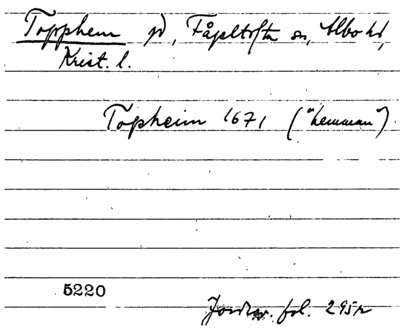 Topphem gd, Fågeltofta sn, Albo hd,
Krist. l.
Topheim 1671 ("hemman").
5220
Jordr. fol. 295r